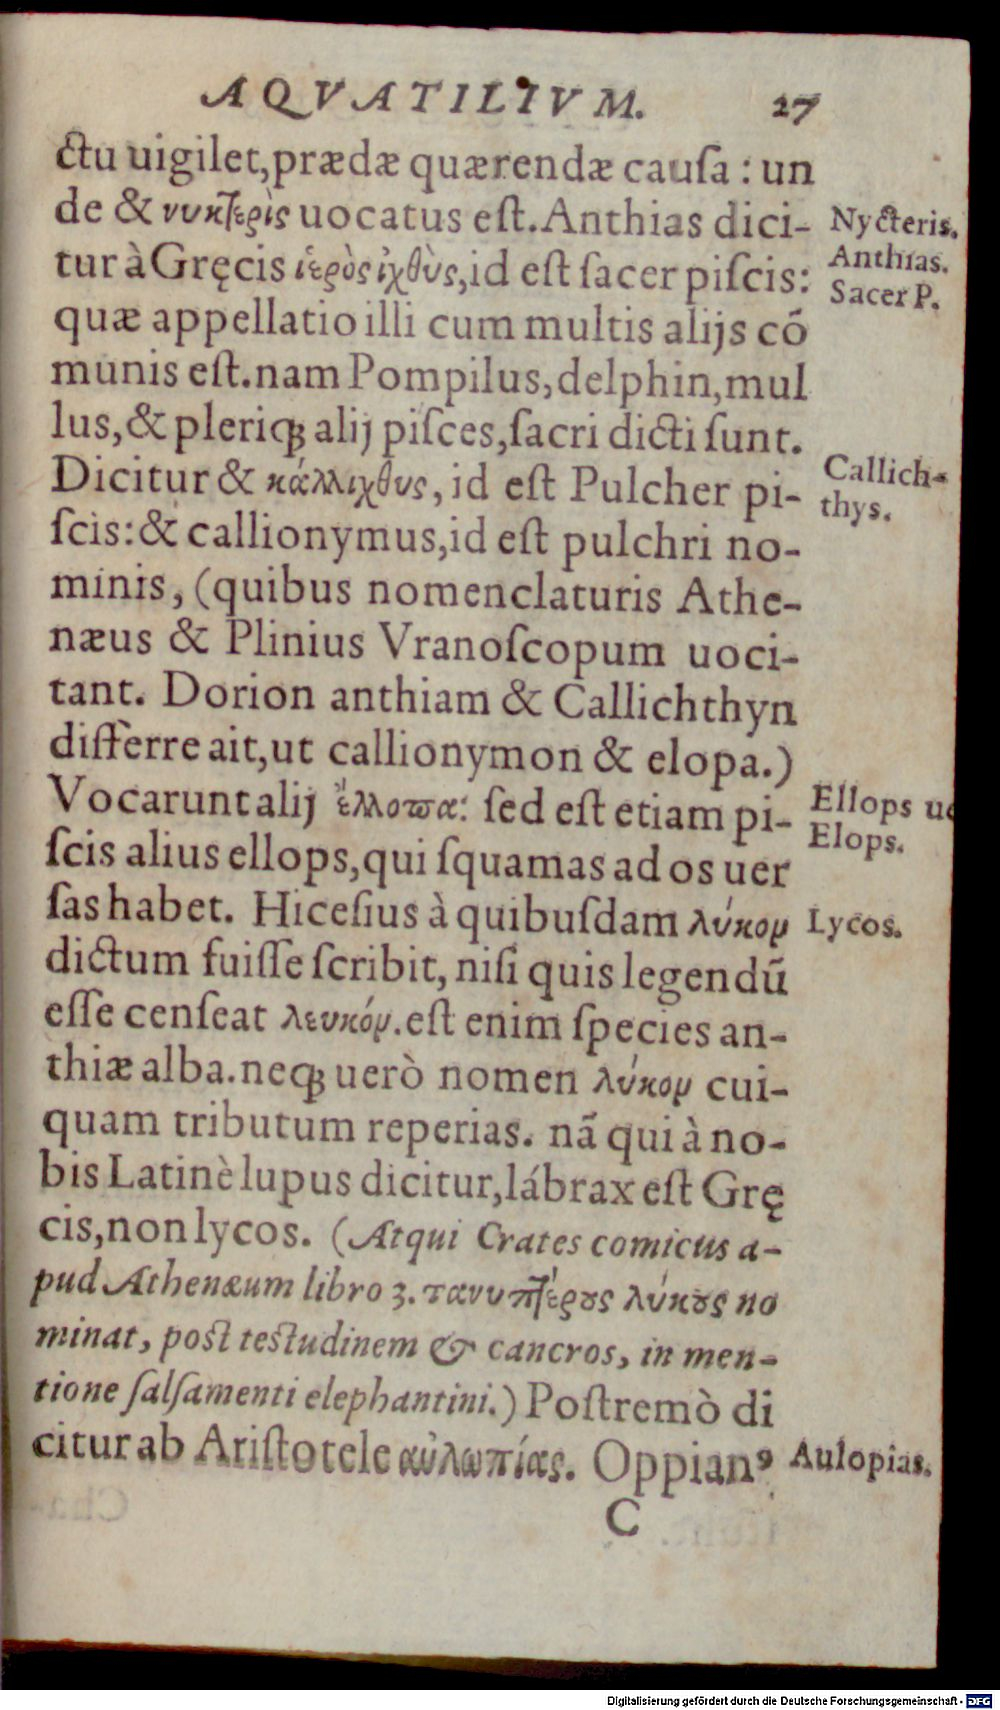 AQVATILIVM. 27
ctu uigilet, prædæ quærendæ cauſa : un
de & νυκτερὶς uocatus eſt. Anthias dici-
Nycteris.
tur à Gręcis ἱερὸς ἰχθὺς, id eſt ſacer piſcis:
Anthias.
Sacer P.
quæ appellatio illi cum multis alijs cõ
munis eſt. nam Pompilus, delphin, mul
lus, & pleriqꝫ alij piſces, ſacri dicti ſunt.
Dicitur & κάλλιχθυς, id eſt Pulcher pi-
Callich-
thys.
ſcis: & callionymus, id eſt pulchri no-
minis, (quibus nomenclaturis Athe-
næus & Plinius Vranoſcopum uoci-
tant. Dorion anthiam & Callichthyn
differre ait, ut callionymon & elopa.)
Vocarunt alij ἔλλοπα: ſed eſt etiam pi-
Ellops ue
Elops.
ſcis alius ellops, qui ſquamas ad os uer
ſas habet. Hiceſius à quibuſdam λύκον
Lycos.
dictum fuiſſe ſcribit, niſi quis legendũ
eſſe cenſeat λευκόν. eſt enim ſpecies an-
thiæ alba. neqꝫ uerò nomen λύκον cui-
quam tributum reperias. nã qui à no-
bis Latinè lupus dicitur, lábrax eſt Grę
cis, non lycos. (Atqui Crates comicus a-
pud Athenæum libro 3. τανυπτέρους λύκους no
minat, poſt teſtudinem & cancros, in men-
tione ſalſamenti elephantini.) Poſtremò di
citur ab Ariſtotele αὐλωπίας. Oppianꝰ
Aulopias.
C
Digitalisierung gefördert durch die Deutsche Forschungsgemeinschaft - DFG